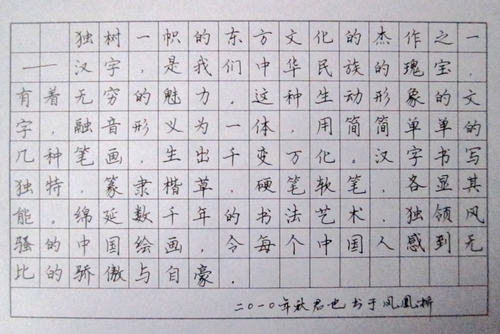 独树一帜的东方文化的杰作之一
——汉字，是我们中华民族的瑰宝，
有着无穷的魅力。这种生动形象的文
字，融音形义为一体，用简简单单的
几种笔画，生出千变万化。汉字书写
独特，篆隶楷草，硬笔软笔，各显其
能。绵延数千年的书法艺术，独领风
骚的中国绘画，令每个中国人感到无
比的骄傲与自豪。
二〇一〇年秋君也书于凤凰桥